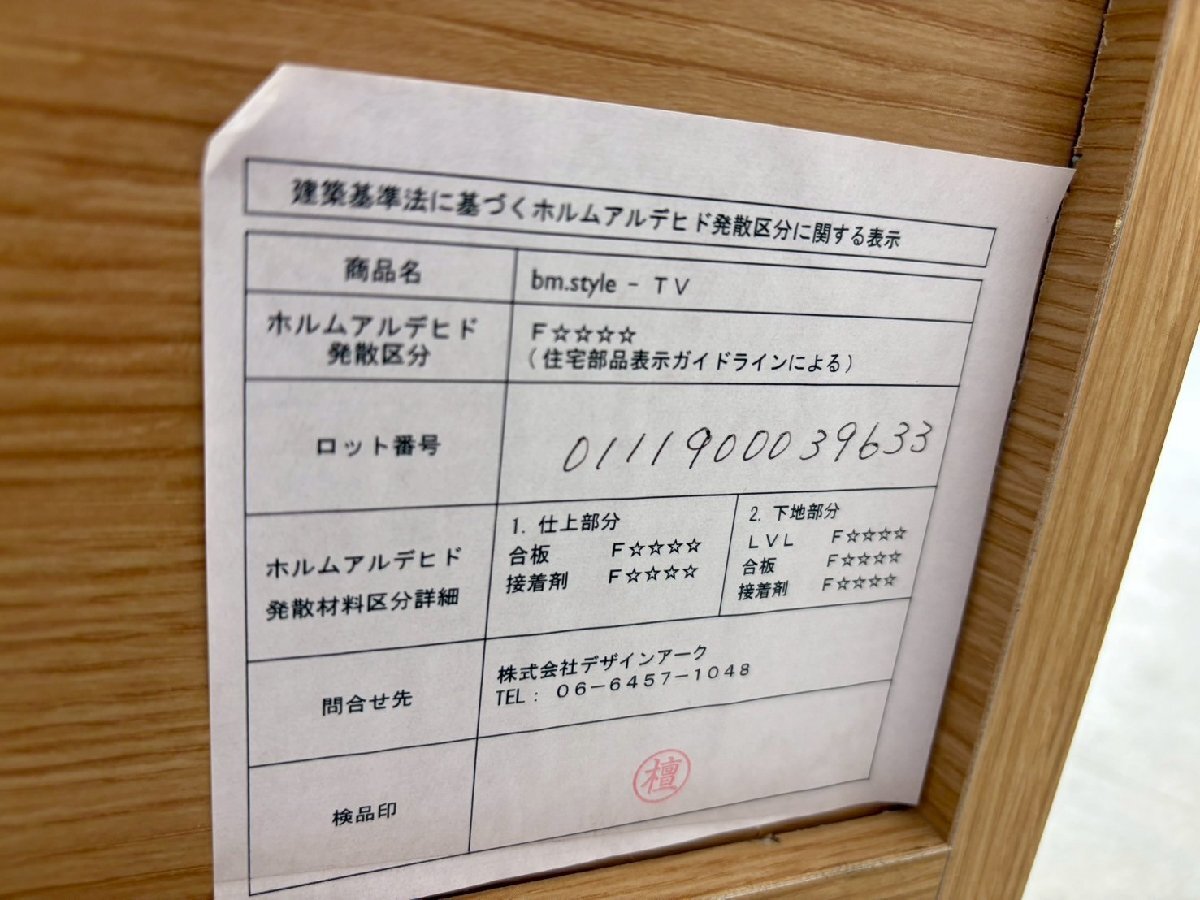 建築基準法に基づくホルムアルデヒド発散区分に関する表示
商品名
bm.style - ＴＶ
ホルムアルデヒド
発散区分
Ｆ☆☆☆☆
（住宅部品表示ガイドラインによる）
ロット番号
0111900039633
ホルムアルデヒド
発散材料区分詳細
1. 仕上部分
合板 Ｆ☆☆☆☆
接着剤 Ｆ☆☆☆☆
2. 下地部分
ＬＶＬ Ｆ☆☆☆☆
合板 Ｆ☆☆☆☆
接着剤 Ｆ☆☆☆☆
問合せ先
株式会社デザインアーク
TEL： ０６−６４５７−１０４８
検品印
檀